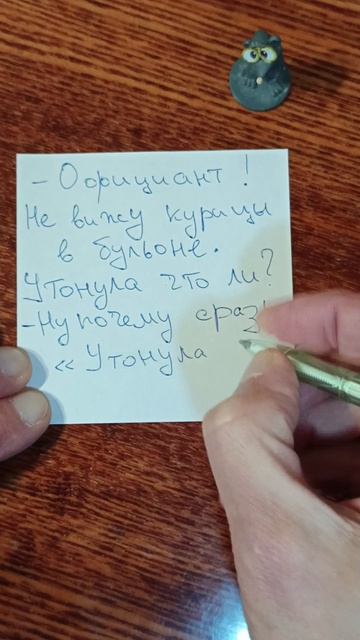 - Официант!
Не вижу курицы
в бульоне.
Утонула что ли?
- Ну почему сраз
« Утонула